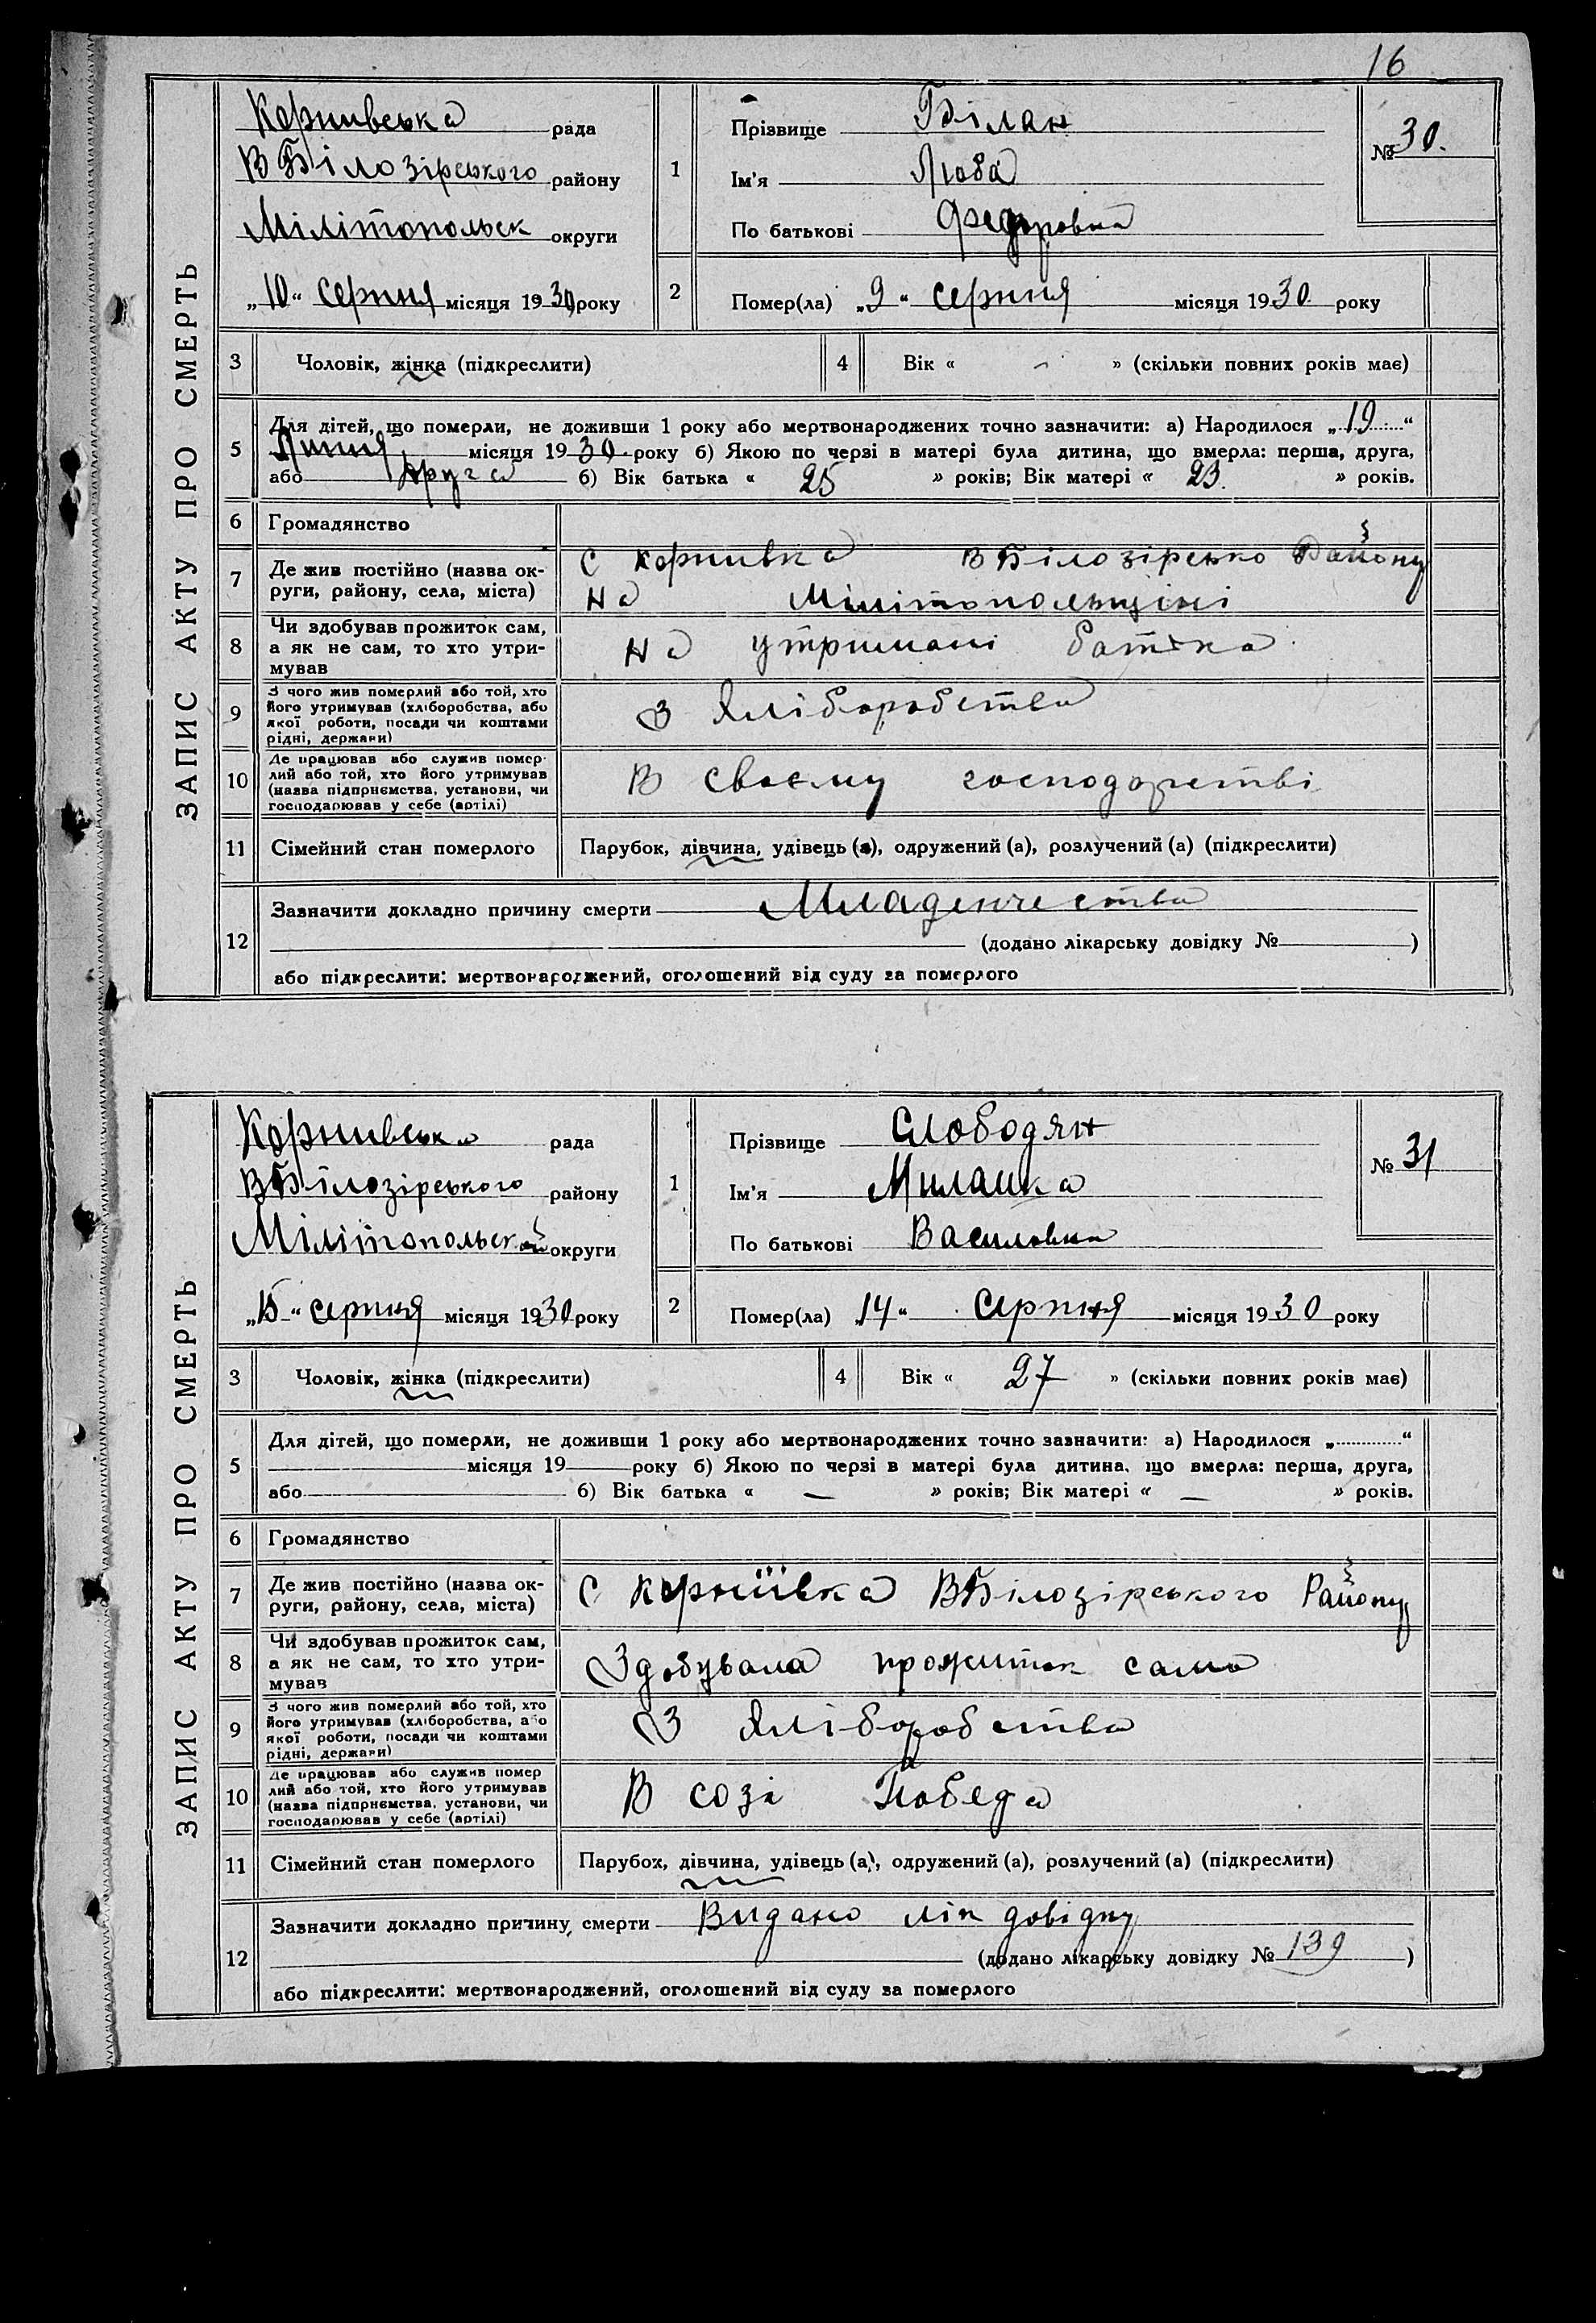 16
ЗАПИС АКТУ ПРО СМЕРТЬ
Корнивська рада
ВБілозірського району
Мілітопольск округи
„10“ серпня місяця 1930 року
1
Прізвище Білан
Ім'я Люба
По батькові Федоровна
№ 30.
2
Помер(ла) „9“ серпня місяця 1930 року
3 Чоловік, жінка (підкреслити)
4 Вік « - » (скільки повних років має)
5 Для дітей, що померли, не доживши 1 року або мертвонароджених точно зазначити: а) Народилося „19“
Липня місяця 1930 року б) Якою по черзі в матері була дитина, що вмерла: перша, друга,
або друга б) Вік батька « 25 » років; Вік матері « 23. » років.
6 Громадянство
7 Де жив постійно (назва ок-
руги, району, села, міста)
С корнивка ВБілозірсько Району
на Мілітопольщіні
8 Чи здобував прожиток сам,
а як не сам, то хто утри-
мував
на утримані батька
9 З чого жив померлий або той, хто
його утримував (хліборобства, або
якої роботи, посади чи коштами
рідні, держави)
З хліборобства
10 Де працював або служив помер-
лий або той, хто його утримував
(назва підприємства, установи, чи
господарював у себе (артілі)
В своєму господарстві
11 Сімейний стан померлого Парубок, дівчина, удівець (а), одружений (а), розлучений (а) (підкреслити)
12 Зазначити докладно причину смерти Младенчества
(додано лікарську довідку № )
або підкреслити: мертвонароджений, оголошений від суду за померлого
ЗАПИС АКТУ ПРО СМЕРТЬ
Корнивська рада
ВБілозірського району
Мілітопольской округи
„15“ серпня місяця 1930 року
1
Прізвище Слободян
Ім'я Милашка
По батькові Василовна
№ 31
2
Помер(ла) „14“ Серпня місяця 1930 року
3 Чоловік, жінка (підкреслити)
4 Вік « 27 » (скільки повних років має)
5 Для дітей, що померли, не доживши 1 року або мертвонароджених точно зазначити: а) Народилося „ “
місяця 19 року б) Якою по черзі в матері була дитина, що вмерла: перша, друга,
або б) Вік батька « — » років; Вік матері « — » років.
6 Громадянство
7 Де жив постійно (назва ок-
руги, району, села, міста)
С корніївка ВБілозірського Району
8 Чи здобував прожиток сам,
а як не сам, то хто утри-
мував
Здобувала прожиток сама
9 З чого жив померлий або той, хто
його утримував (хліборобства, або
якої роботи, посади чи коштами
рідні, держави)
З хліборобства
10 Де працював або служив помер
лий або той, хто його утримував
(назва підприємства, установи, чи
господарював у себе (артілі)
В созі Победа
11 Сімейний стан померлого Парубок, дівчина, удівець (а), одружений (а), розлучений (а) (підкреслити)
12 Зазначити докладно причину смерти Видано лік довідку
(додано лікарську довідку № 139 )
або підкреслити: мертвонароджений, оголошений від суду за померлого